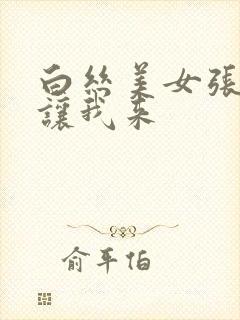 白丝美女張
讓我来
俞平伯